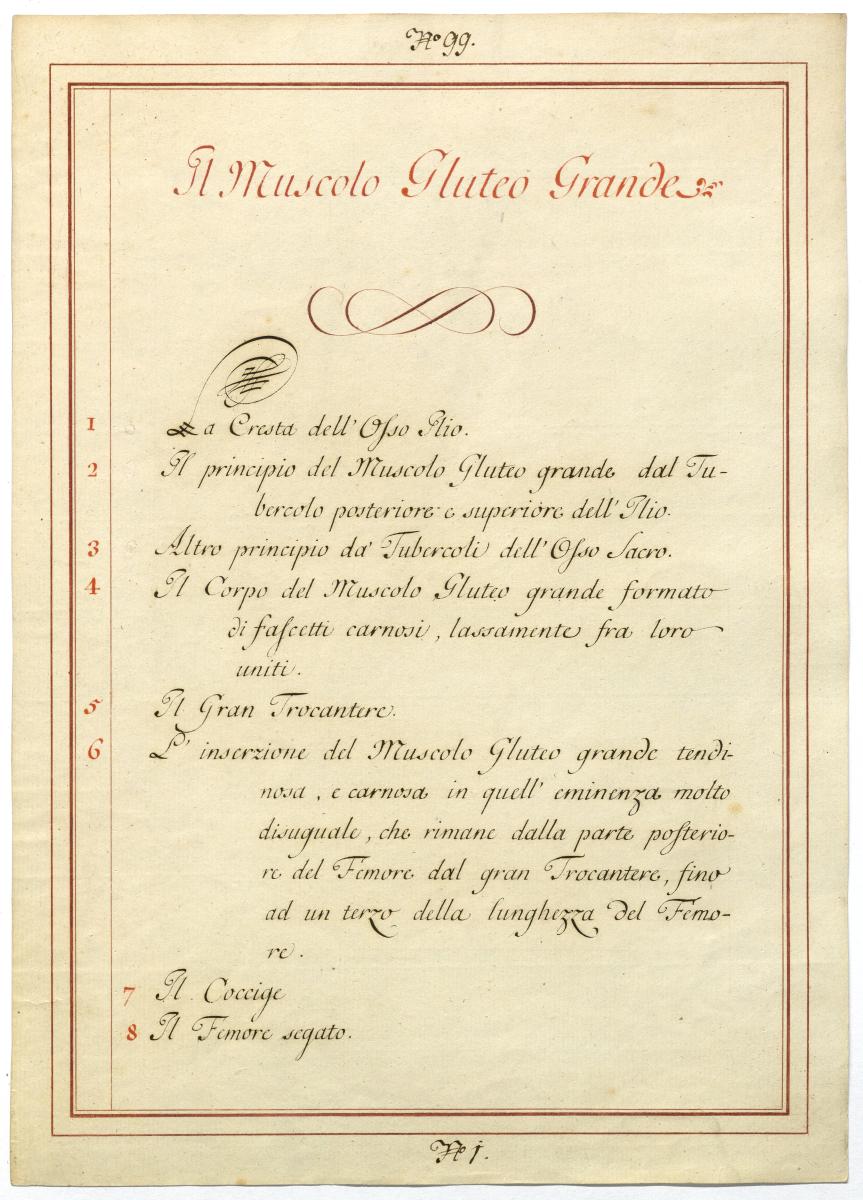 No 99.
Il Muscolo Gluteo Grande
1 La Cresta dell' Osso Ilio.
2 Il principio del Muscolo Gluteo grande dal Tu-
bercolo posteriore e superiore dell' Ilio.
3 Altro principio da' Tubercoli dell' Osso Sacro.
4 Il Corpo del Muscolo Gluteo grande formato
di fascetti carnosi, lassamente fra loro
uniti.
5 Il Gran Trocantere.
6 L' inserzione del Muscolo Gluteo grande tendi-
nosa, e carnosa in quell' eminenza molto
disuguale, che rimane dalla parte posterio-
re del Femore dal gran Trocantere, fino
ad un terzo della lunghezza del Femo-
re.
7 Il Coccige
8 Il Femore segato.
No 1.